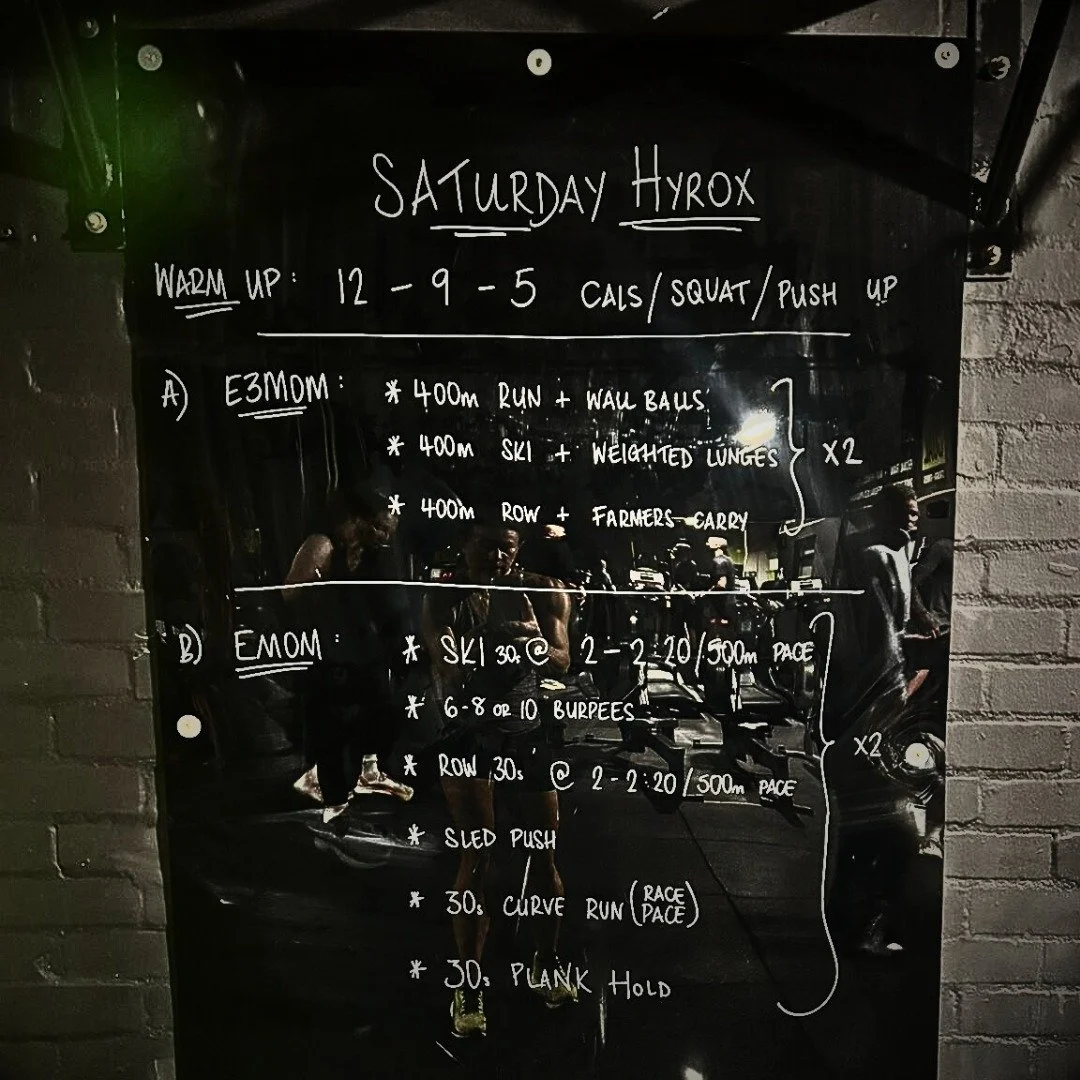 SATURDAY HYROX
WARM UP: 12 - 9 - 5 CALS/SQUAT/PUSH UP
A) E3MOM: * 400m RUN + WALL BALLS
* 400m SKI + WEIGHTED LUNGES x2
* 400m ROW + FARMERS CARRY
B) EMOM: * SKI 30s @ 2 - 2:20/500m PACE
* 6-8 OR 10 BURPEES
* ROW 30s @ 2 - 2:20/500m PACE x2
* SLED PUSH
* 30s CURVE RUN (RACE PACE)
* 30s PLANK HOLD